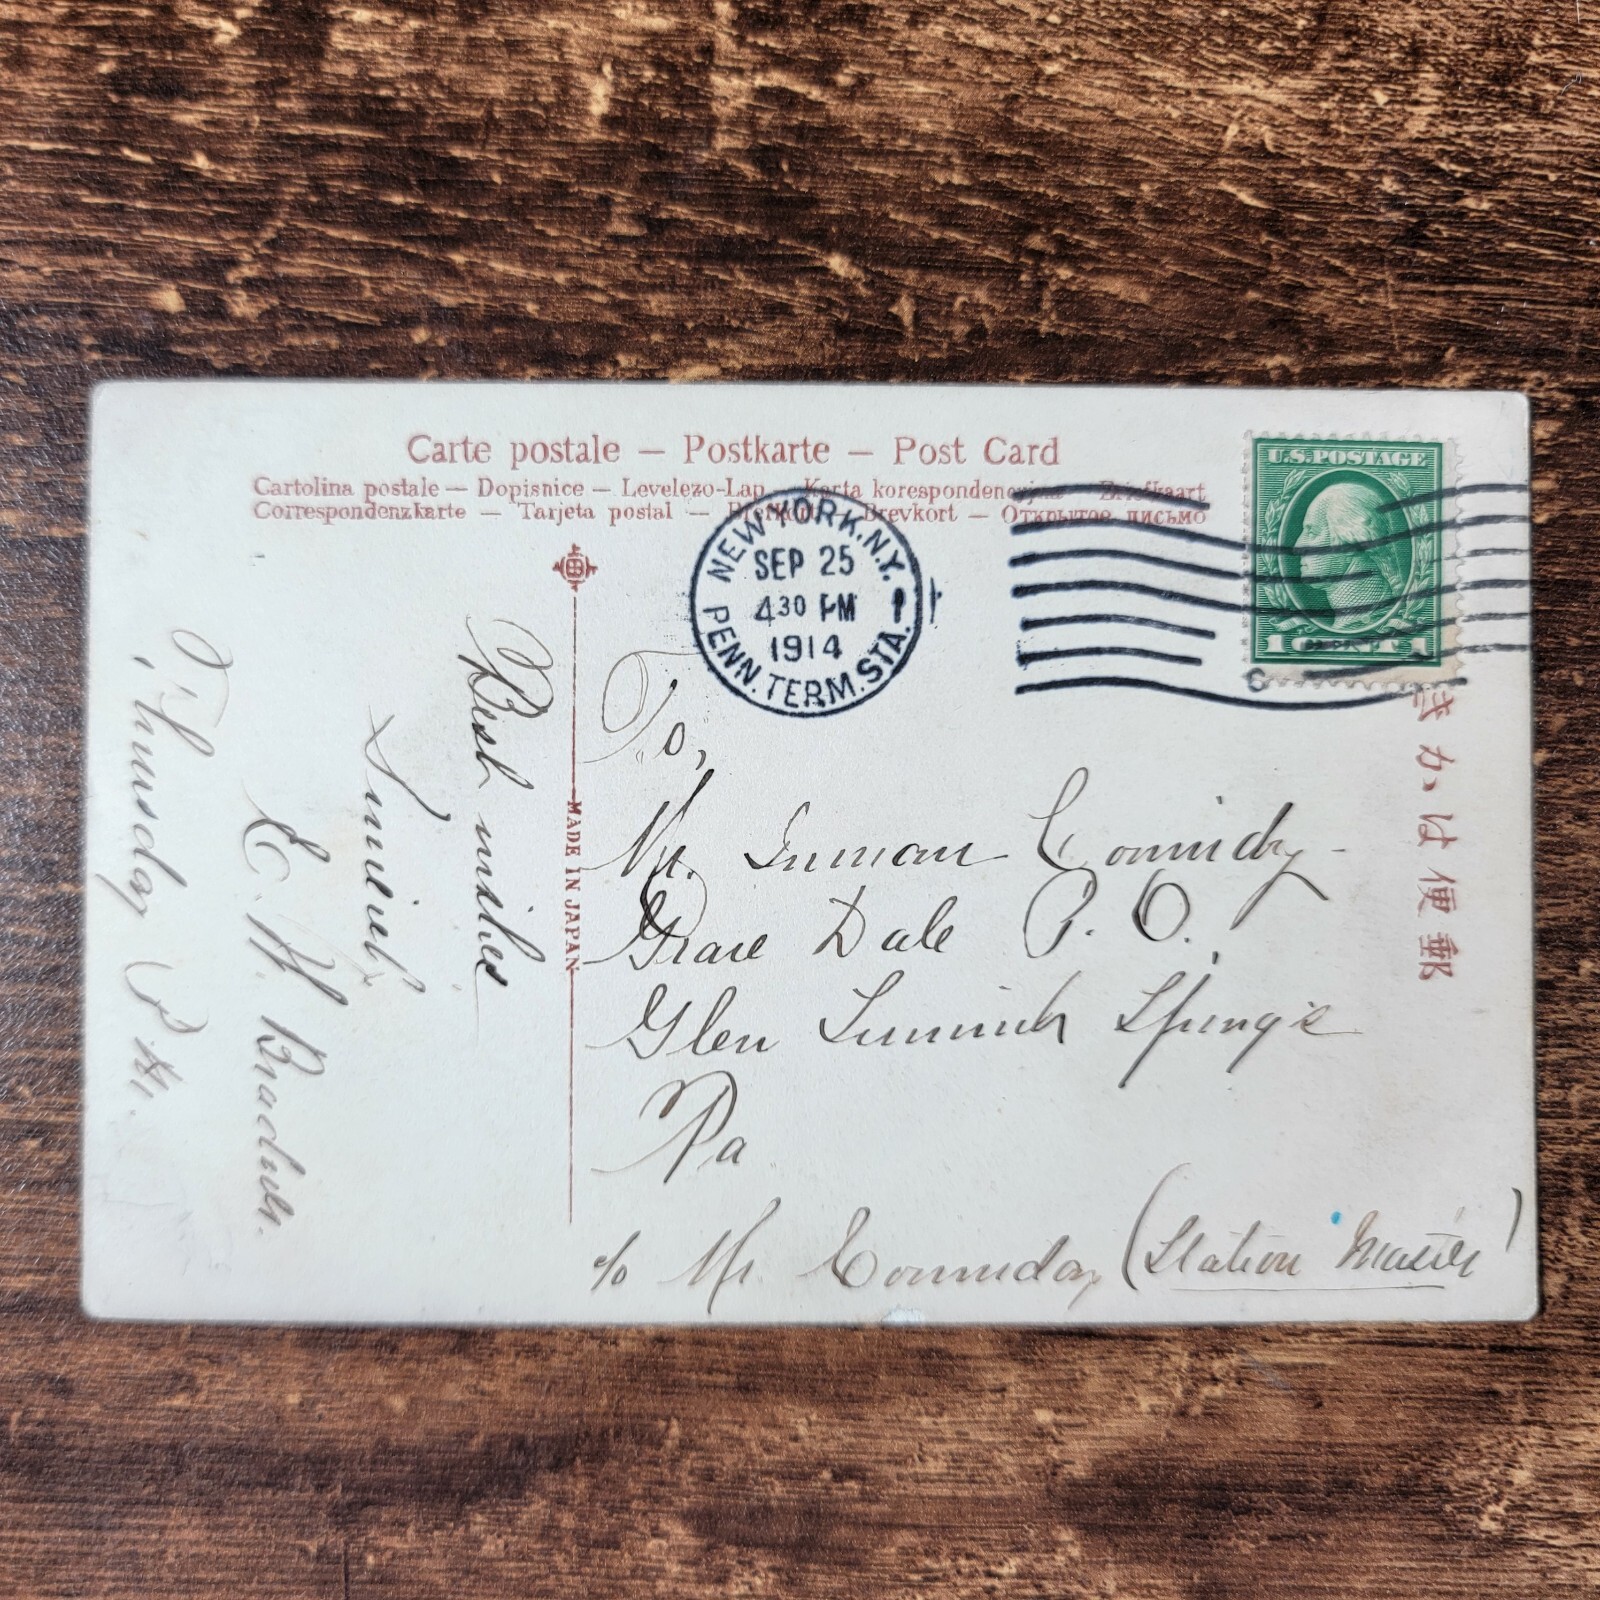 Carte postale — Postkarte — Post Card
Cartolina postale — Dopisnice — Levelezo-Lap — Karta korespondencyjna — Briefkaart
Correspondenzkarte — Tarjeta postal — Brefkort — Brevkort — Открытое письмо
NEW YORK, N.Y.
SEP 25
4 30 PM
1914
PENN. TERM. STA.
U.S. POSTAGE
1 CENT 1
きかは便郵
MADE IN JAPAN
To,
Mr. Inman
Grace Dale P. O.
Glen Summit Springs
Pa
c/o Mr (Station Master)
Best wishes
E. W.
Thursday P M.